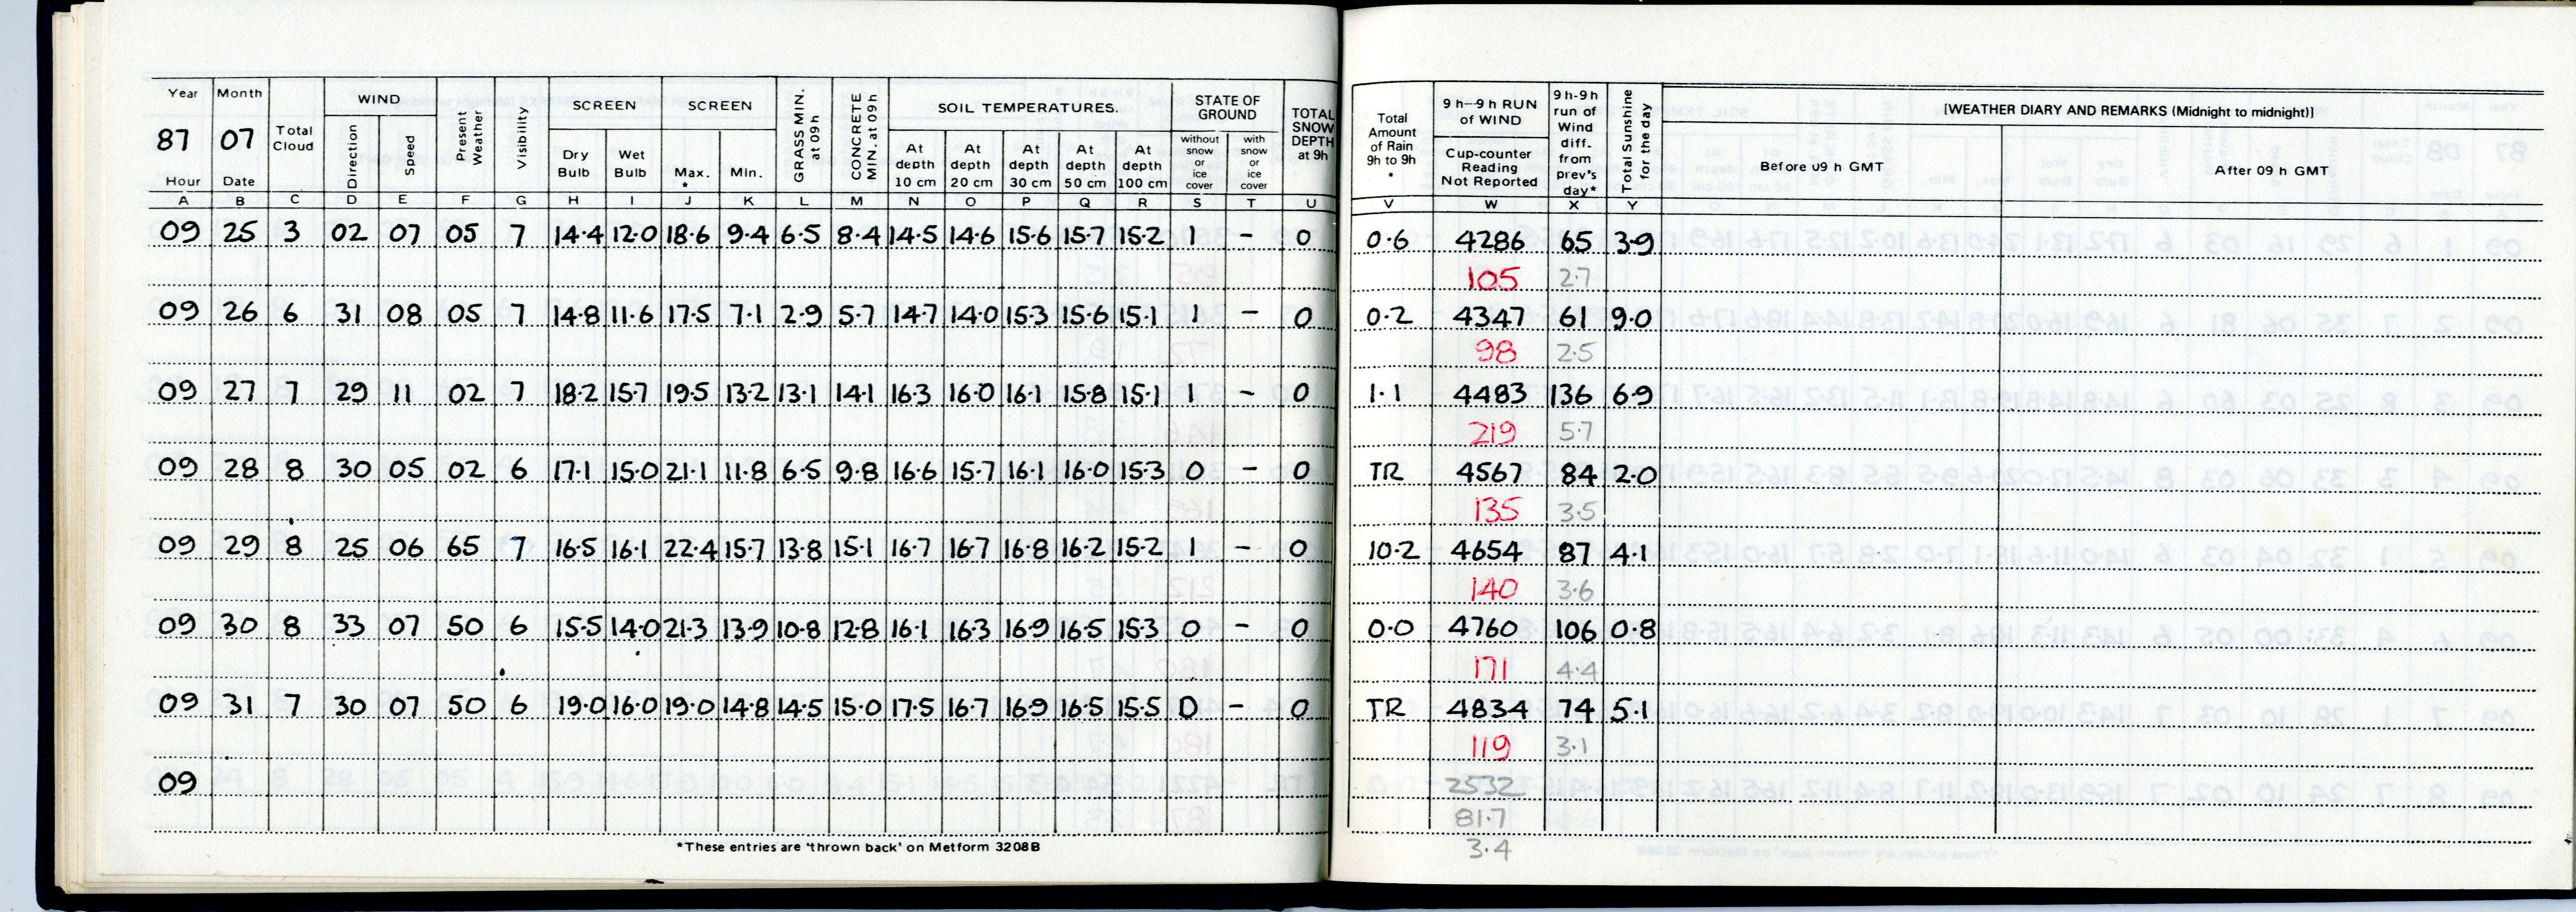 Year Month Total Cloud WIND Present Weather Visibility SCREEN SCREEN GRASS MIN. at 09h CONCRETE MIN. at 09h SOIL TEMPERATURES. STATE OF GROUND TOTAL SNOW DEPTH at 9h
87 07 Direction Speed Dry Bulb Wet Bulb Max. * Min. At depth 10 cm At depth 20 cm At depth 30 cm At depth 50 cm At depth 100 cm without snow or ice cover with snow or ice cover
Hour Date
A B C D E F G H I J K L M N O P Q R S T U
09 25 3 02 07 05 7 14.4 12.0 18.6 9.4 6.5 8.4 14.5 14.6 15.6 15.7 15.2 1 - 0
09 26 6 31 08 05 7 14.8 11.6 17.5 7.1 2.9 5.7 14.7 14.0 15.3 15.6 15.1 1 - 0
09 27 7 29 11 02 7 18.2 15.7 19.5 13.2 13.1 14.1 16.3 16.0 16.1 15.8 15.1 1 - 0
09 28 8 30 05 02 6 17.1 15.0 21.1 11.8 6.5 9.8 16.6 15.7 16.1 16.0 15.3 0 - 0
09 29 8 25 06 65 7 16.5 16.1 22.4 15.7 13.8 15.1 16.7 16.7 16.8 16.2 15.2 1 - 0
09 30 8 33 07 50 6 15.5 14.0 21.3 13.9 10.8 12.8 16.1 16.3 16.9 16.5 15.3 0 - 0
09 31 7 30 07 50 6 19.0 16.0 19.0 14.8 14.5 15.0 17.5 16.7 16.9 16.5 15.5 0 - 0
09
*These entries are 'thrown back' on Metform 3208B
Total Amount of Rain 9h to 9h * 9h—9h RUN of WIND 9h-9h run of Wind diff. from prev's day* Total Sunshine for the day [WEATHER DIARY AND REMARKS (Midnight to midnight)]
Cup-counter Reading Not Reported Before 09 h GMT After 09 h GMT
V W X Y
0.6 4286 65 3.9
105 2.7
0.2 4347 61 9.0
98 2.5
1.1 4483 136 6.9
219 5.7
TR 4567 84 2.0
135 3.5
10.2 4654 87 4.1
140 3.6
0.0 4760 106 0.8
171 4.4
TR 4834 74 5.1
119 3.1
2532
81.7
3.4